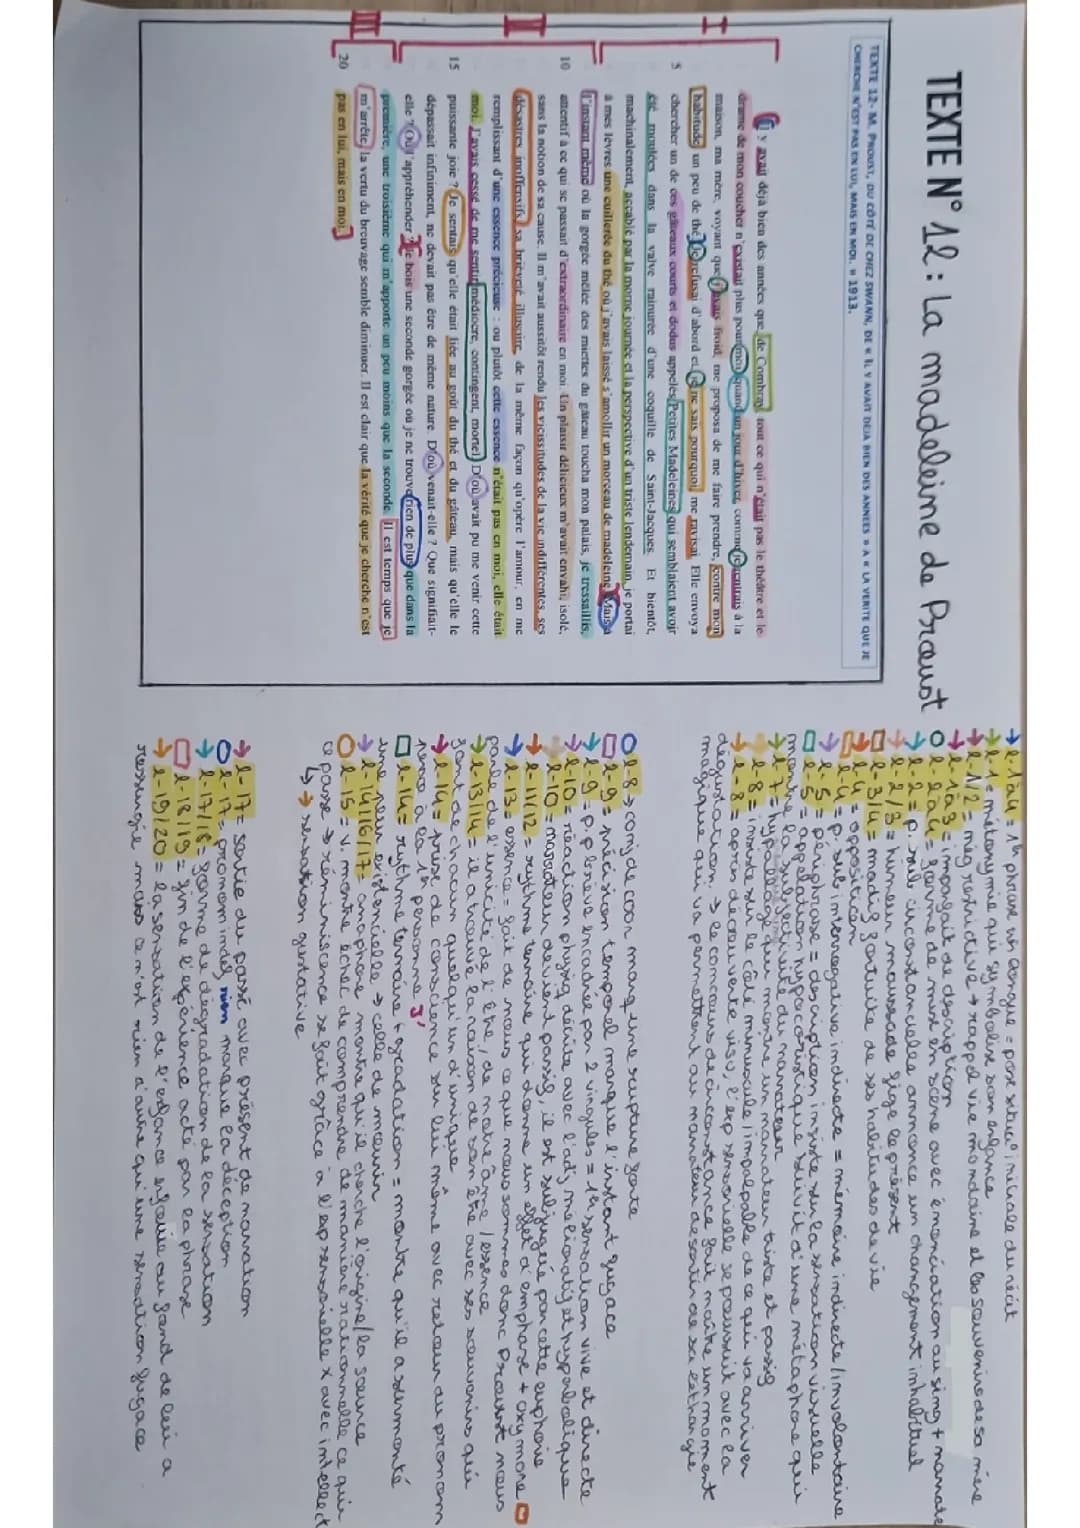 TEXTE N° 12 : La madeleine de Proust
TEXTE 12- M. PROUST, DU CÔTÉ DE CHEZ SWANN, DE « IL Y AVAIT DEJA BIEN DES ANNEES » A « LA VERITE QUE JE
CHERCHE N'EST PAS EN LUI, MAIS EN MOI. » 1913.
I
Il y avait déjà bien des années que, de Combray, tout ce qui n'était pas le théâtre et le
drame de mon coucher n'existait plus pour moi, quand un jour d'hiver, comme je rentrais à la
maison, ma mère, voyant que j'avais froid, me proposa de me faire prendre, contre mon
habitude, un peu de thé. Je refusai d'abord et, je ne sais pourquoi, me ravisai. Elle envoya
5 chercher un de ces gâteaux courts et dodus appelés Petites Madeleines qui semblaient avoir
été moulées dans la valve rainurée d'une coquille de Saint-Jacques. Et bientôt,
machinalement, accablé par la morne journée et la perspective d'un triste lendemain, je portai
à mes lèvres une cuillerée du thé où j'avais laissé s'amollir un morceau de madeleine. Mais à
II
l'instant même où la gorgée mêlée des miettes du gâteau toucha mon palais, je tressaillis,
10 attentif à ce qui se passait d'extraordinaire en moi. Un plaisir délicieux m'avait envahi, isolé,
sans la notion de sa cause. Il m'avait aussitôt rendu les vicissitudes de la vie indifférentes, ses
désastres inoffensifs, sa brièveté illusoire, de la même façon qu'opère l'amour, en me
remplissant d'une essence précieuse : ou plutôt cette essence n'était pas en moi, elle était
moi. J'avais cessé de me sentir médiocre, contingent, mortel. D'où avait pu me venir cette
15 puissante joie ? Je sentais qu'elle était liée au goût du thé et du gâteau, mais qu'elle le
dépassait infiniment, ne devait pas être de même nature. D'où venait-elle ? Que signifiait-
elle ? Où l'appréhender ? Je bois une seconde gorgée où je ne trouve rien de plus que dans la
III
première, une troisième qui m'apporte un peu moins que la seconde. Il est temps que je
m'arrête, la vertu du breuvage semble diminuer. Il est clair que la vérité que je cherche n'est
20 pas en lui, mais en moi.
→ l-1à4 = 1h phrase un longue = pose situa° initiale du récit
→ l-1 = métonymie qui symbolise son enfance
→ l-1/2 = nég restrictive → rappel vie mondaine et les souvenirs de sa mère
→ l-1à3 = imparfait de description
O l-2à4 = forme de mise en scène avec énonciation au sing + narrate
→ l-2 = p. sub circonstancielle annonce un changement inhabituel
→ l-2/3 = humeur maussade fige le présent
→ l-3/4 = modif fortuite de ses habitudes de vie
→ l-4 = opposition
→ l-4 = p. sub interrogative indirecte = mémoire indirecte/involontaire
→ l-5 = périphrase = description insiste sur la sensation visuelle
l-5 = appelation hypocoristique suivit d'une métaphore qui
montre la subjectivité du narrateur
→ l-7 = hypallage qui montre un narrateur triste et passif
→ l-8 = insiste sur le côté minuscule/impalpable de ce qui va arriver
→ l-8 = après découverte visu, l'exp sensorielle se poursuit avec la
dégustation → le concours de circonstance fait naître un moment
magique qui va permettre au narrateur de sortir de sa léthargie
O l-8 → conj de coor marq une rupture forte
l-9 = précision temporel marque l'instant fugace
→ l-9 = p. brève encadrée par 2 virgules = 1h sensation vive et directe
→ l-10 = réaction physiq décrite avec l'adj mélioratif et hyperbolique
→ l-10 = narrateur devient passif, il est subjuguée par cette euphorie
→ l-11/12 = rythme ternaire qui donne un effet d'emphase + oxymore
→ l-13 = essence = fait de nous ce que nous sommes donc Proust nous
parle de l'unicité de l'être, de notre âme/essence
→ l-13/14 = il a trouvé la raison de son être avec ses souvenirs qui
font de chacun quelqu'un d'unique
→ l-14 = prise de conscience sur lui même avec retour du pronom
perso à la 1h personne J'
l-14 = rythme ternaire + gradation = montre qu'il a surmonté
une peur existencielle → celle de mourir
→ l-14/16/17 = anaphore montre qu'il cherche l'origine/la source
O l-15 = v. montre échec de comprendre de manière rationnelle ce qui
ce passe → réminiscence se fait grâce à l'exp sensorielle x avec intellect
↳ → sensation gustative
→ l-17 = sortie du passé avec présent de narration
O l-17 = pronom indéf rien marque la déception
→ l-17/18 = forme de dégradation de la sensation
l-18/19 = fin de l'expérience acté par la phrase
→ l-19/20 = la sensation de l'enfance enfouie au fond de lui a
ressurgie mais ce n'est rien d'autre qu'une sensation fugace